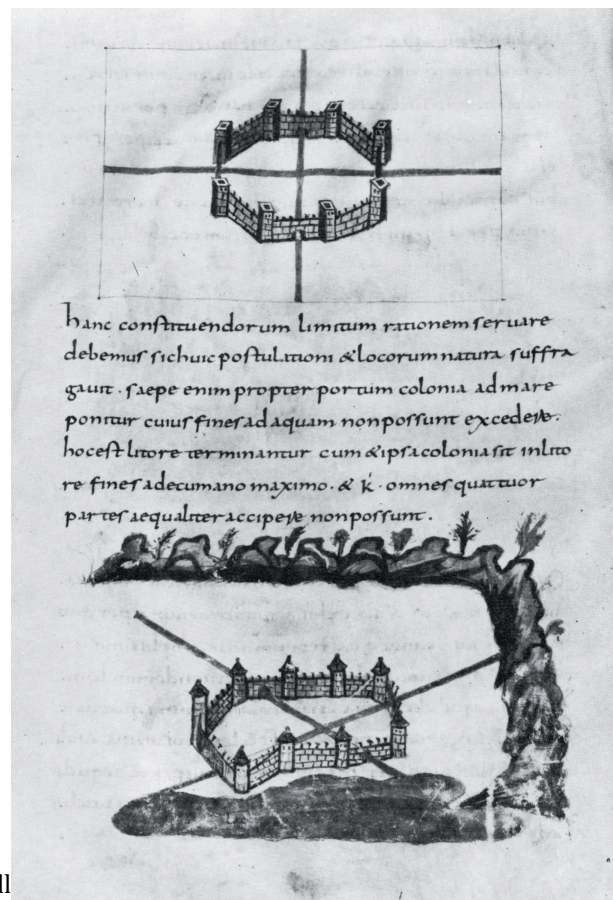 hanc constituendorum limitum rationem seruare
debemus sichuic postulationi & locorum natura suffra
gauit · saepe enim propter portum colonia ad mare
ponitur cuius fines ad aquam non possunt excedere ·
hoc est litore terminantur cum & ipsa colonia sit in lito
re fines a decumano maximo · & k · omnes quattuor
partes aequaliter accipere non possunt ·
ll